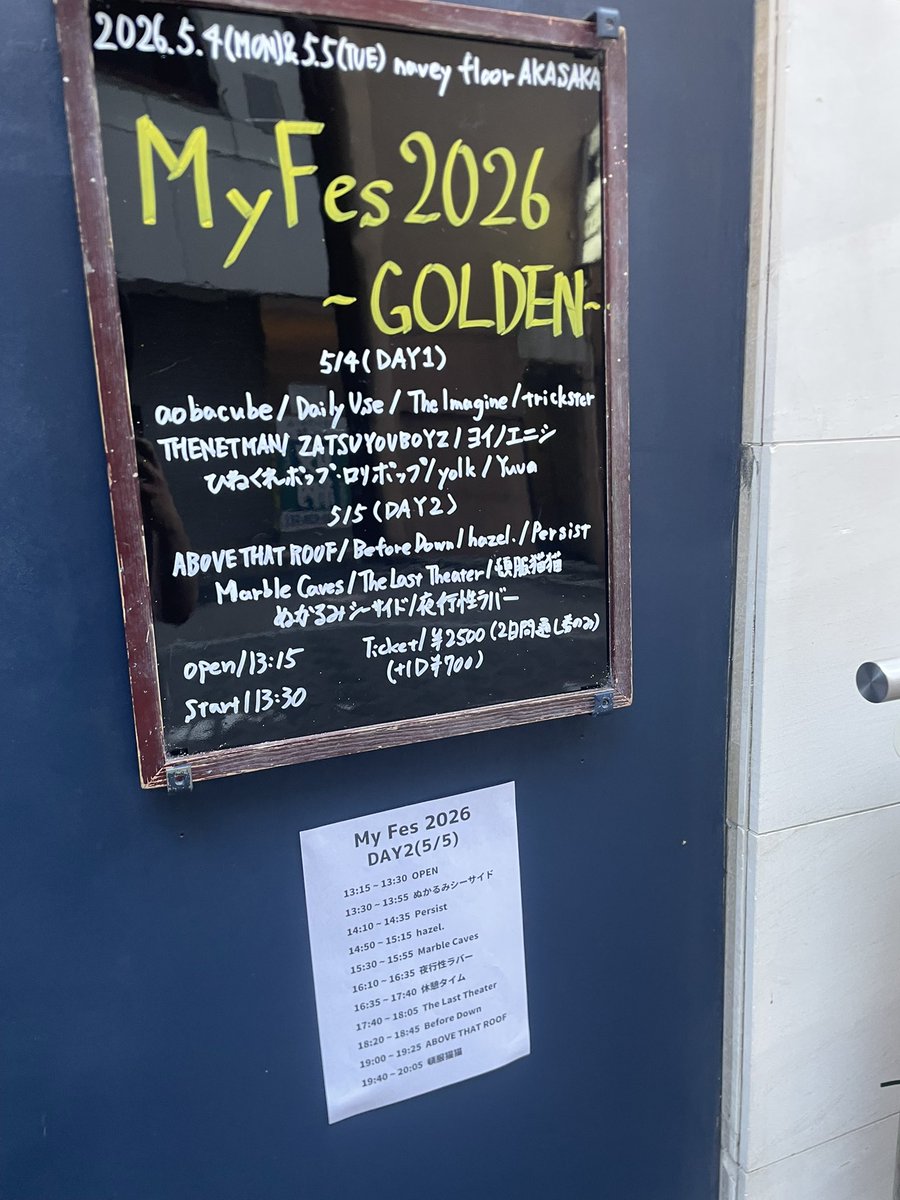 2026.5.4(MON)&5.5(TUE) navey floor AKASAKA
MyFes2026
~GOLDEN~
5/4(DAY1)
aobacube/Daily Use/The Imagine/trickster
THENETMAN/ZATSUYOUBOYZ/ヨイノエニシ
ひねくれポップ・ロリポップ/yolk/Yuva
5/5(DAY2)
ABOVE THAT ROOF/Before Down/hazel./Persist
Marble Caves/The Last Theater/頓服猫猫
ぬかるみシーサイド/夜行性ラバー
open/13:15
start/13:30
Ticket/¥2500(2日間通し券のみ)
(+1D¥700)
My Fes 2026
DAY2(5/5)
13:15~13:30 OPEN
13:30~13:55 ぬかるみシーサイド
14:10~14:35 Persist
14:50~15:15 hazel.
15:30~15:55 Marble Caves
16:10~16:35 夜行性ラバー
16:35~17:40 休憩タイム
17:40~18:05 The Last Theater
18:20~18:45 Before Down
19:00~19:25 ABOVE THAT ROOF
19:40~20:05 頓服猫猫